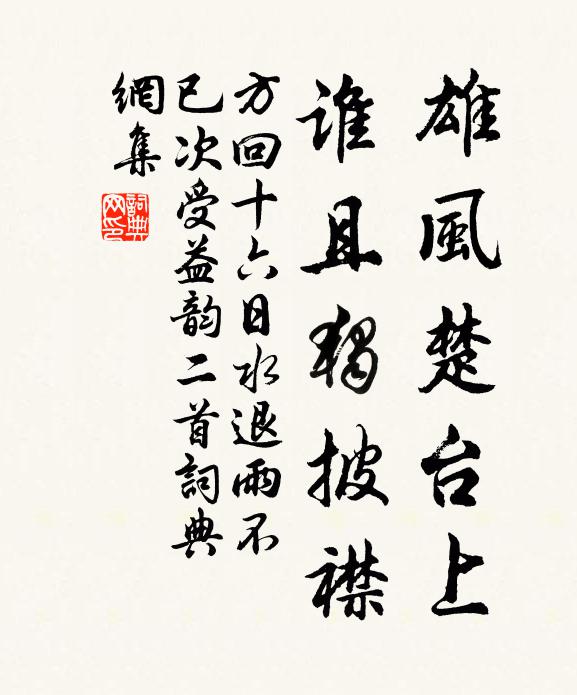 雄風楚台上
谁且獨披襟
方回十六日水退雨不
已次受益韵二首詞典
網集
詞典
网印